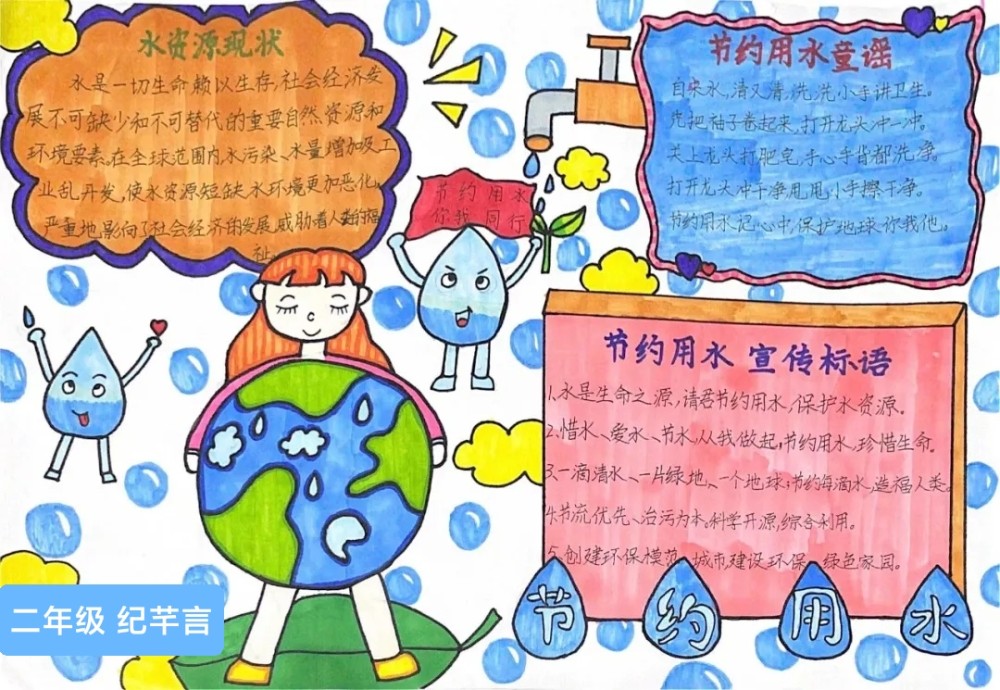 水资源现状
水是一切生命赖以生存,社会经济发
展不可缺少和不可替代的重要自然资源和
环境要素。在全球范围内,水污染、水量增加及工
业乱开发,使水资源短缺水环境更加恶化,
严重地影向了社会经济的发展,威胁着人类的福
祉。
节约用水
你我同行
节约用水童谣
自来水,清又清,洗洗小手讲卫生。
先把袖子卷起来,打开龙头冲一冲。
关上龙头打肥皂,手心手背都洗净。
打开龙头冲干净,甩甩小手擦干净。
节约用水记心中,保护地球你我他。
节约用水 宣传标语
1.水是生命之源,请君节约用水,保护水资源。
2.惜水、爱水、节水,从我做起,节约用水,珍惜生命。
3.一滴清水、一片绿地、一个地球;节约每滴水,造福人类。
4.节流优先、治污为本,科学开源,综合利用。
5.创建环保模范城市,建设环保绿色家园。
节约用水
二年级 纪芊言